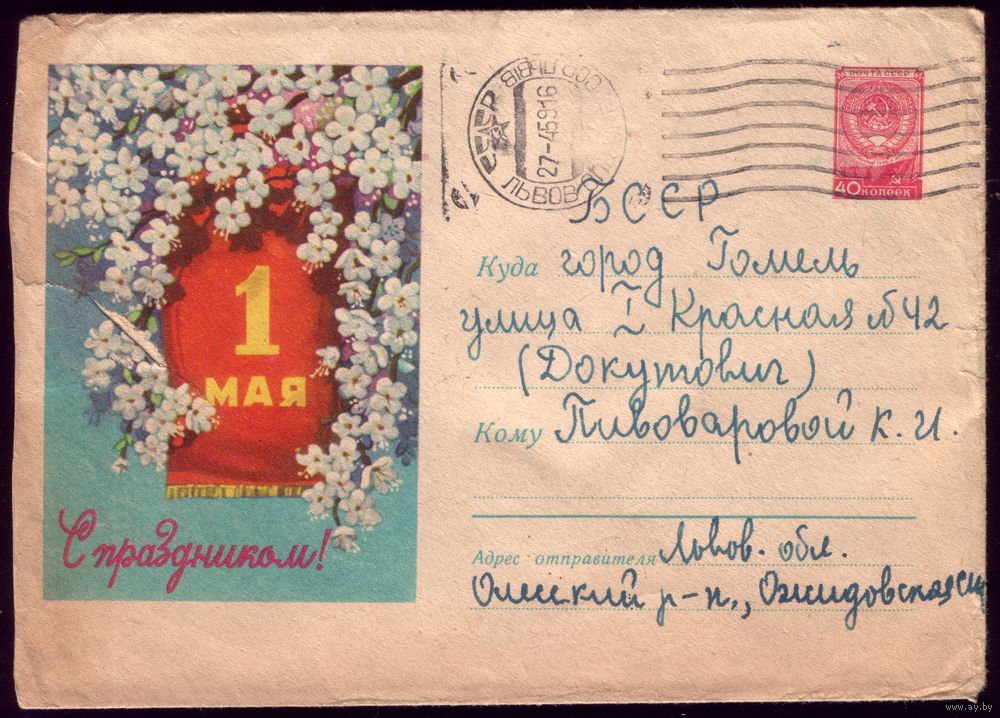 1
МАЯ
С праздником!
СССР ЛЬВІВ
27-45916
ЛЬВОВ
ПОЧТА СССР
40 КОПЕЕК
БССР
Куда город Гомель
улица I Красная № 42
(Докутович)
Кому Пивоваровой К. И.
Адрес отправителя Львов. обл.
р-н., Ожидовская
www.ay.by